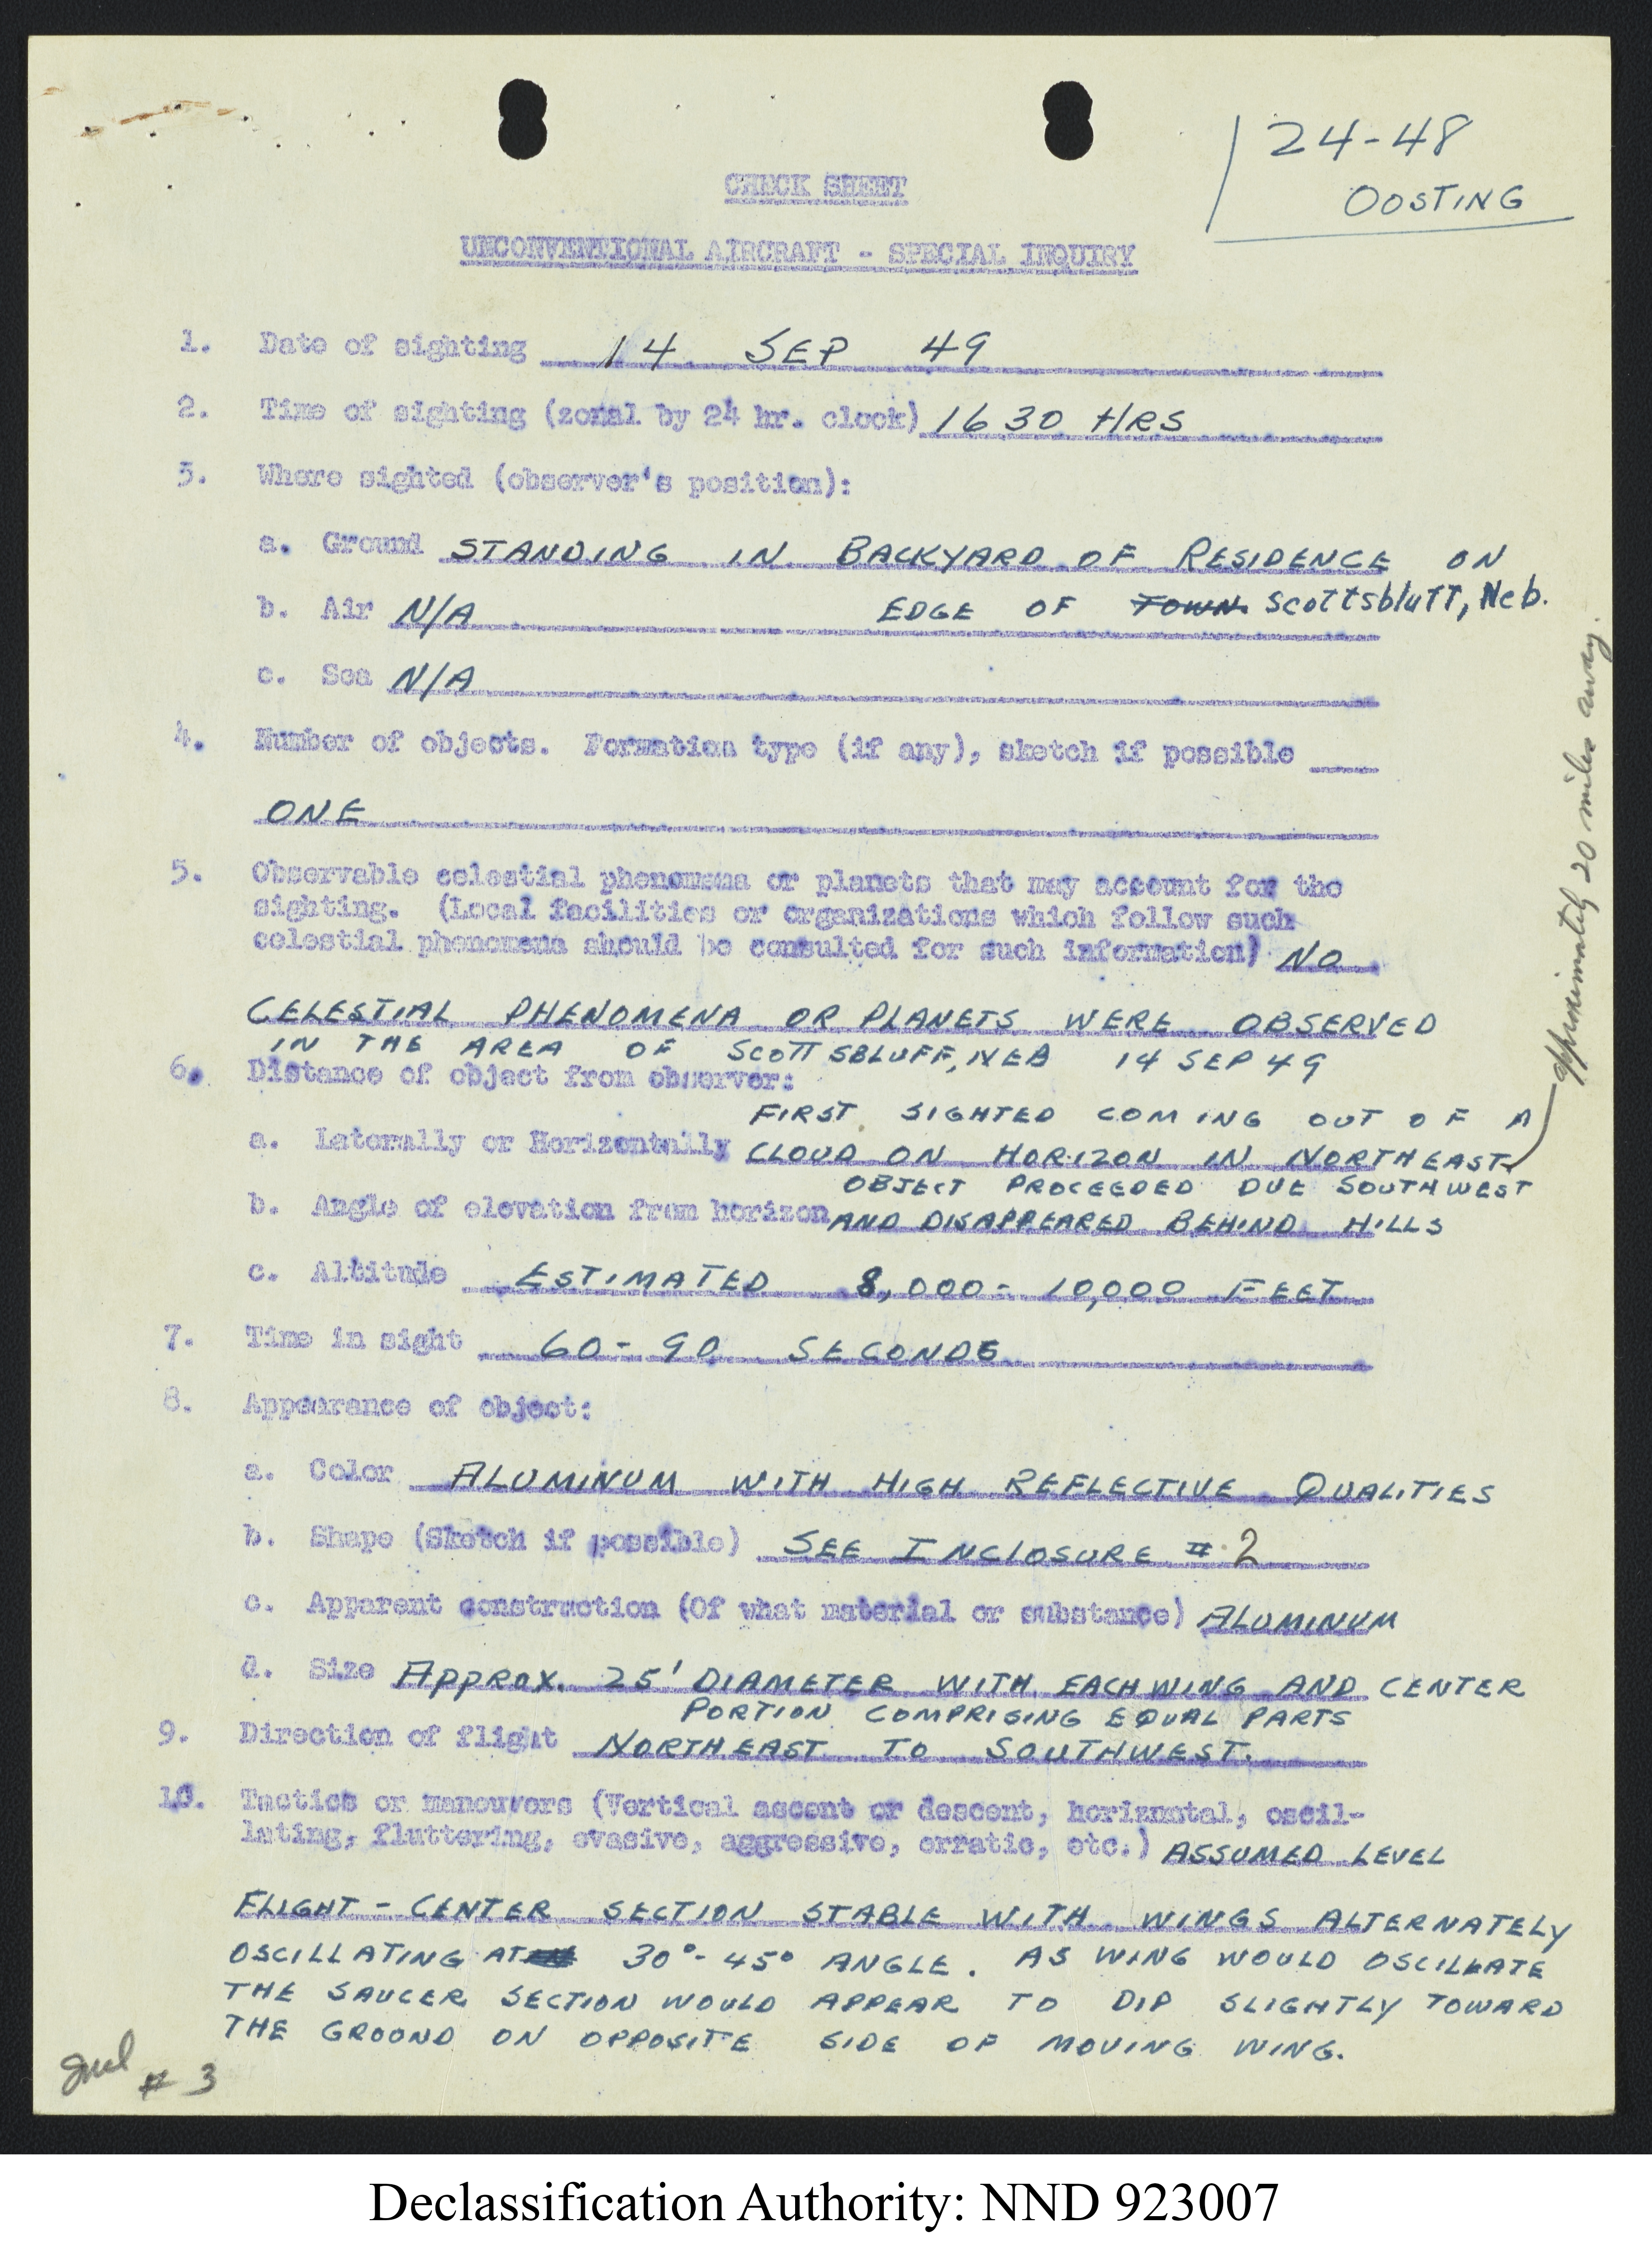 24-48
OOSTING
CHECK SHEET
UNCONVENTIONAL AIRCRAFT - SPECIAL INQUIRY
1. Date of sighting 14 SEP 49
2. Time of sighting (zonal by 24 hr. clock) 1630 HRS
3. Where sighted (observer's position):
a. Ground STANDING IN BACKYARD OF RESIDENCE ON
EDGE OF TOWN Scottsbluff, Neb.
b. Air N/A
c. Sea N/A
4. Number of objects. Formation type (if any), sketch if possible
ONE
5. Observable celestial phenomena or planets that may account for the
sighting. (Local facilities or organizations which follow such
celestial phenomena should be consulted for such information) NO
CELESTIAL PHENOMENA OR PLANETS WERE OBSERVED
IN THE AREA OF SCOTTSBLUFF, NEB 14 SEP 49
6. Distance of object from observer:
FIRST SIGHTED COMING OUT OF A
a. Laterally or Horizontally CLOUD ON HORIZON IN NORTHEAST
approximately 20 miles away.
OBJECT PROCEEDED DUE SOUTHWEST
b. Angle of elevation from horizon AND DISAPPEARED BEHIND HILLS
c. Altitude ESTIMATED 8,000 - 10,000 FEET
7. Time in sight 60 - 90 SECONDS
8. Appearance of object:
a. Color ALUMINUM WITH HIGH REFLECTIVE QUALITIES
b. Shape (Sketch if possible) SEE INCLOSURE # 2
c. Apparent construction (Of what material or substance) ALUMINUM
d. Size APPROX. 25' DIAMETER WITH EACH WING AND CENTER
PORTION COMPRISING EQUAL PARTS
9. Direction of flight NORTHEAST TO SOUTHWEST.
10. Tactics or maneuvers (Vertical ascent or descent, horizontal, oscil-
lating, fluttering, evasive, aggressive, erratic, etc.) ASSUMED LEVEL
FLIGHT - CENTER SECTION STABLE WITH WINGS ALTERNATELY
OSCILLATING AT 30° - 45° ANGLE. AS WING WOULD OSCILLATE
THE SAUCER SECTION WOULD APPEAR TO DIP SLIGHTLY TOWARD
THE GROUND ON OPPOSITE SIDE OF MOVING WING.
Incl # 3
Declassification Authority: NND 923007